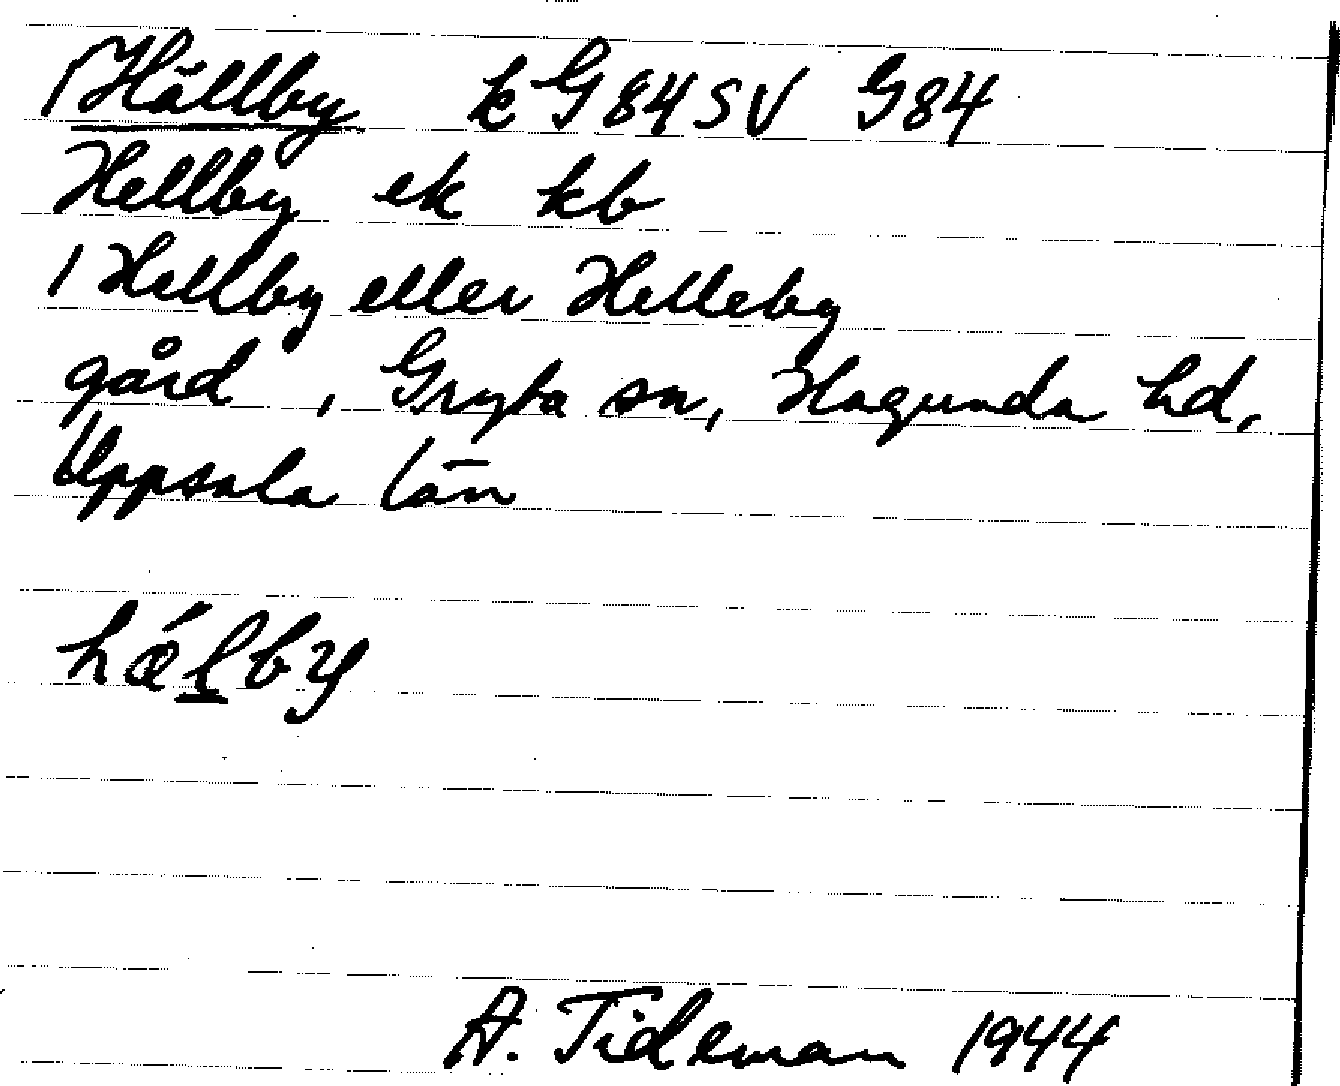 Hällby k G84SV G84
Hellby ek kb
1 Hellby eller Helleby
gård, Gryta sn, Hagunda hd,
Uppsala län
hǽlby
A. Tideman 1944